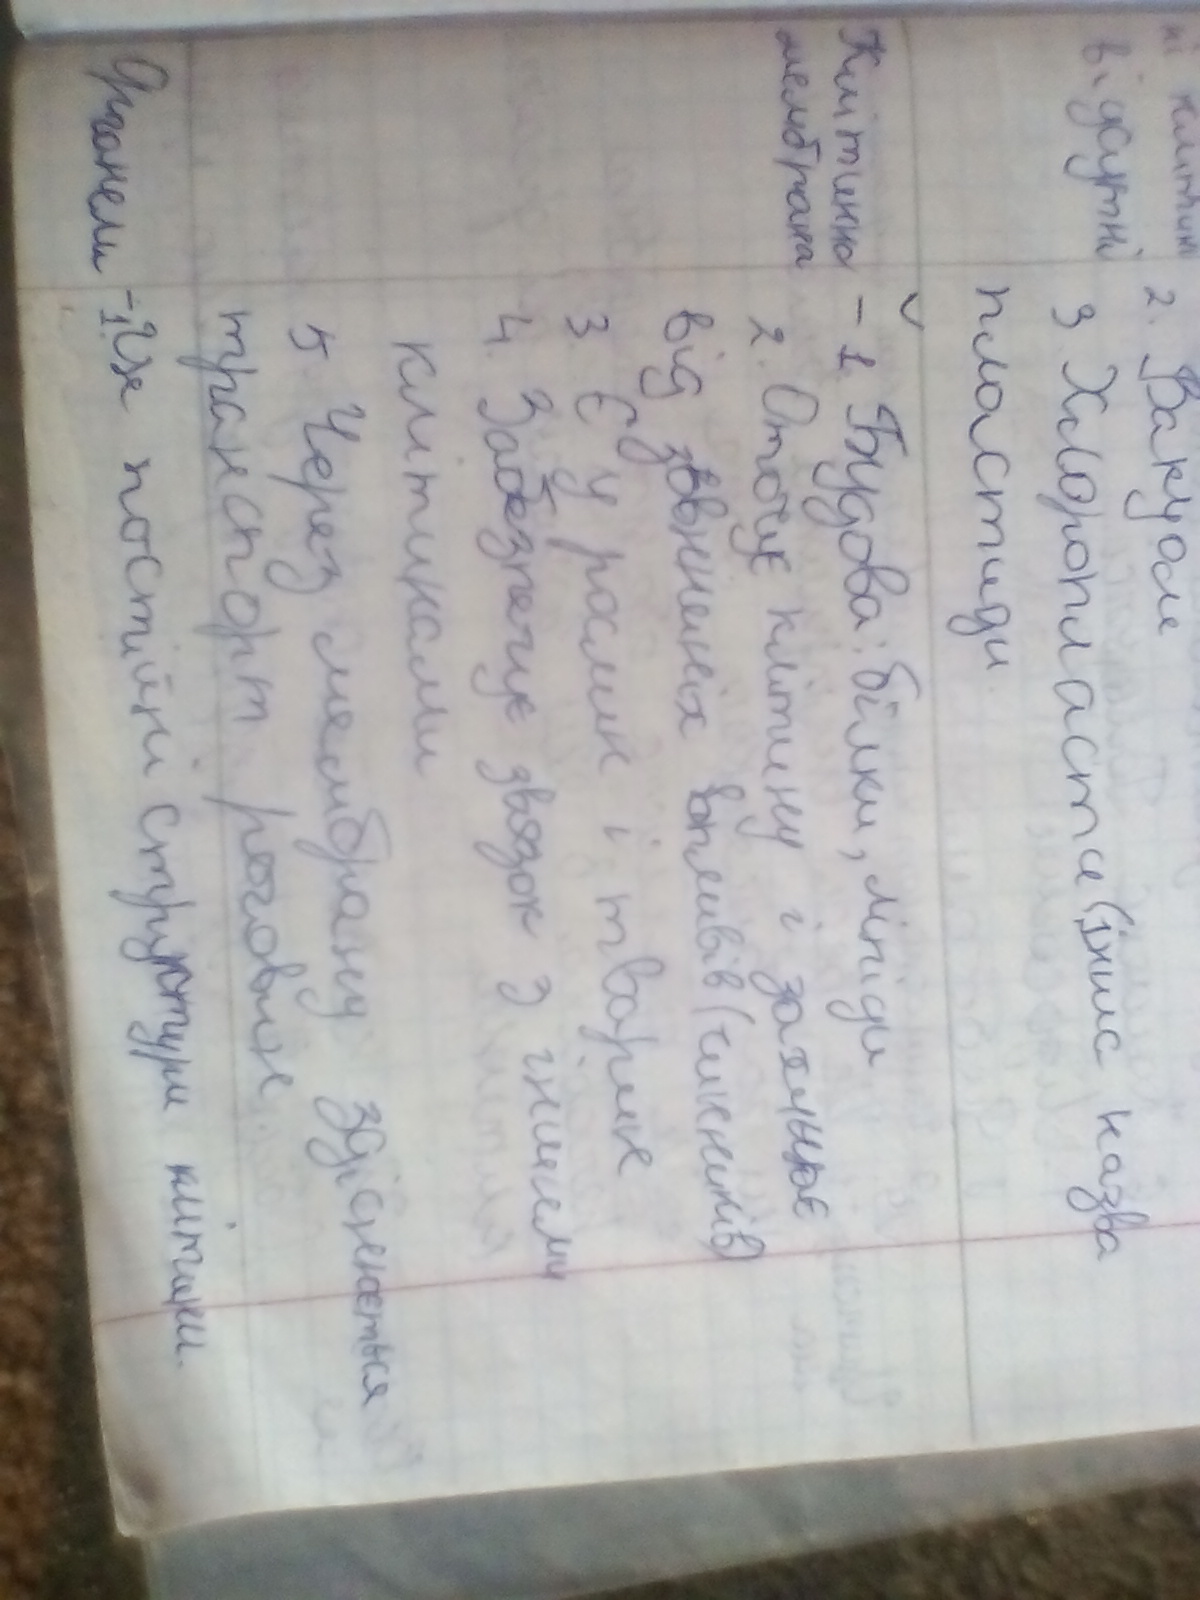 ні клітині
відсутні
2. Вакуоле
3. Хлоропласти (інша назва
пластиди.
Клітинна
мембрана
– 1. Будова: білки, ліпіди
2. Оточує клітину і захищає
від зовнішніх впливів (чинників)
3. Є у рослин і тварин
4. Забезпечує звязок з іншими
клітинами
5. Через мембрану здіснюється
транспорт речовин.
Органели – 1. Це постійні структури клітини.